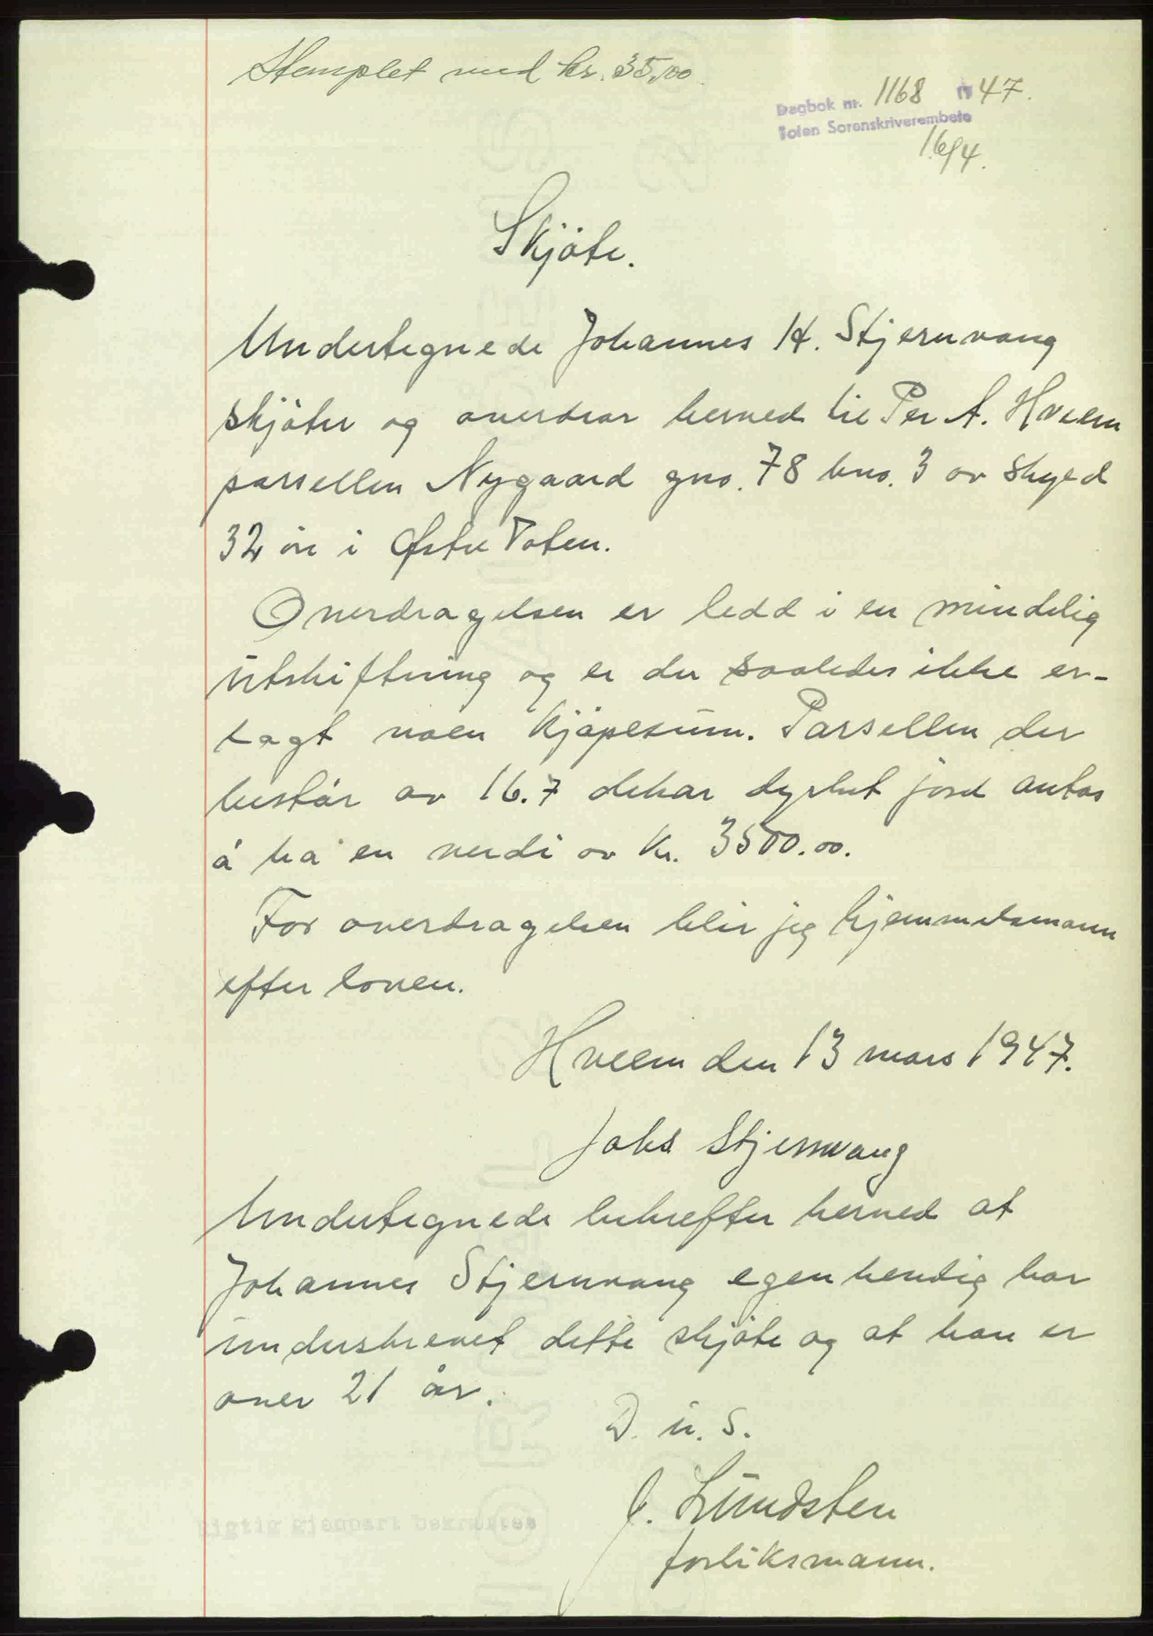 Stemplet med kr. 35,00
Dagbok nr. 1168 19 47.
Toten Sorenskriverembete
16/4.
Skjöte.
Undertegnede Johannes H. Stjernvang
skjöter og overdrar herved til Per A. Hveem
parsellen Nygaard gno. 78 bno. 3 av skyld
32 öre i Østre Toten.
Overdragelsen er ledd i en mindelig
utskiftning og er der saaledes ikke er-
lagt noen kjöpesum. Parsellen der
består av 16.7 dekar dyrket jord antas
å ha en verdi av kr. 3500.00.
For overdragelsen blir jeg hjemmelsmann
efter loven.
Hveem den 13 mars 1947.
Johs Stjernvang
Undertegnede bekrefter herved at
Johannes Stjernvang egenhendig har
underskrevet dette skjöte og at han er
over 21 år.
D. u. s.
J. Lundsten
forliksmann.
Rigtig gjenpart bekreftes